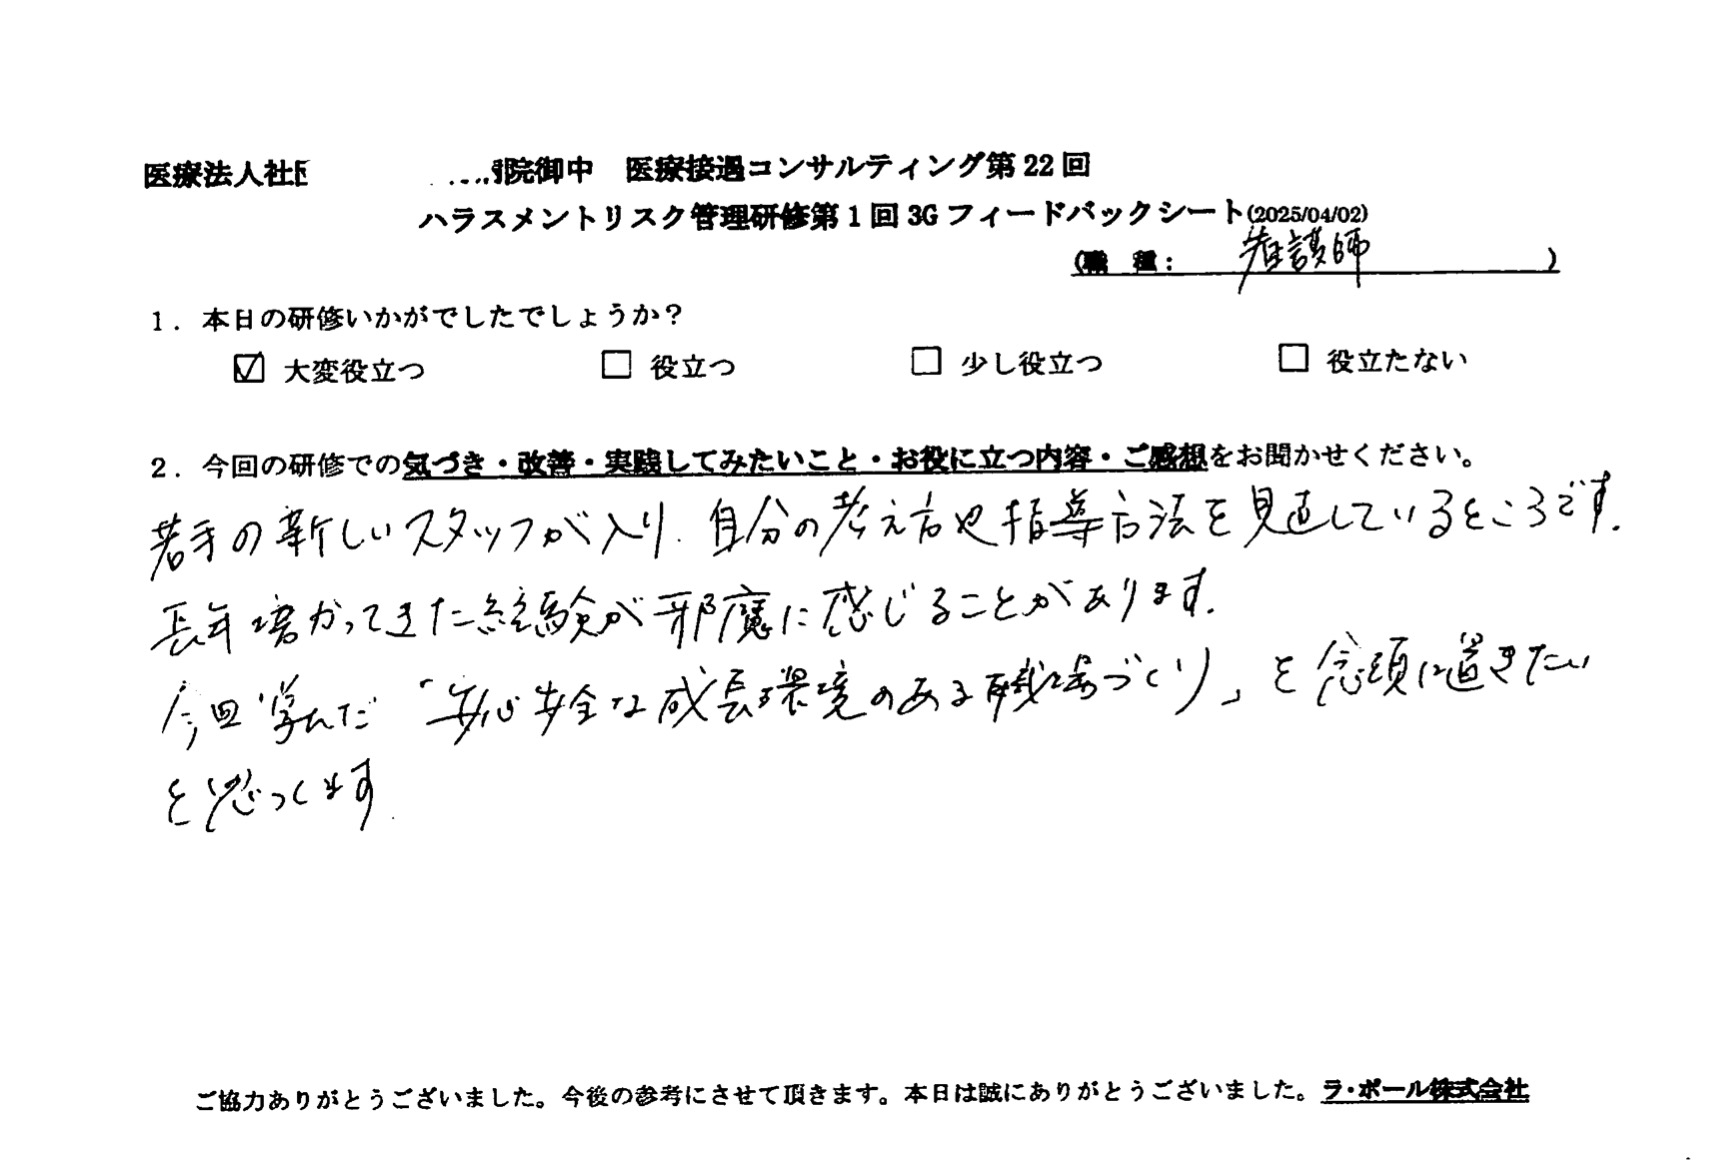 医療法人社 院御中　医療接遇コンサルティング第22回
ハラスメントリスク管理研修第1回3Gフィードバックシート(2025/04/02)
(職　種：　看護師　)
1．本日の研修いかがでしたでしょうか？
☑ 大変役立つ　□ 役立つ　□ 少し役立つ　□ 役立たない
2．今回の研修での気づき・改善・実践してみたいこと・お役に立つ内容・ご感想をお聞かせください。
若手の新しいスタッフが入り、自分の考え方や指導方法を見直しているところです。
長年培かってきた経験が邪魔に感じることがあります。
今回学んだ「安心安全な成長環境のある職場づくり」を念頭に置きたい
と思っています。
ご協力ありがとうございました。今後の参考にさせて頂きます。本日は誠にありがとうございました。ラ・ポール株式会社